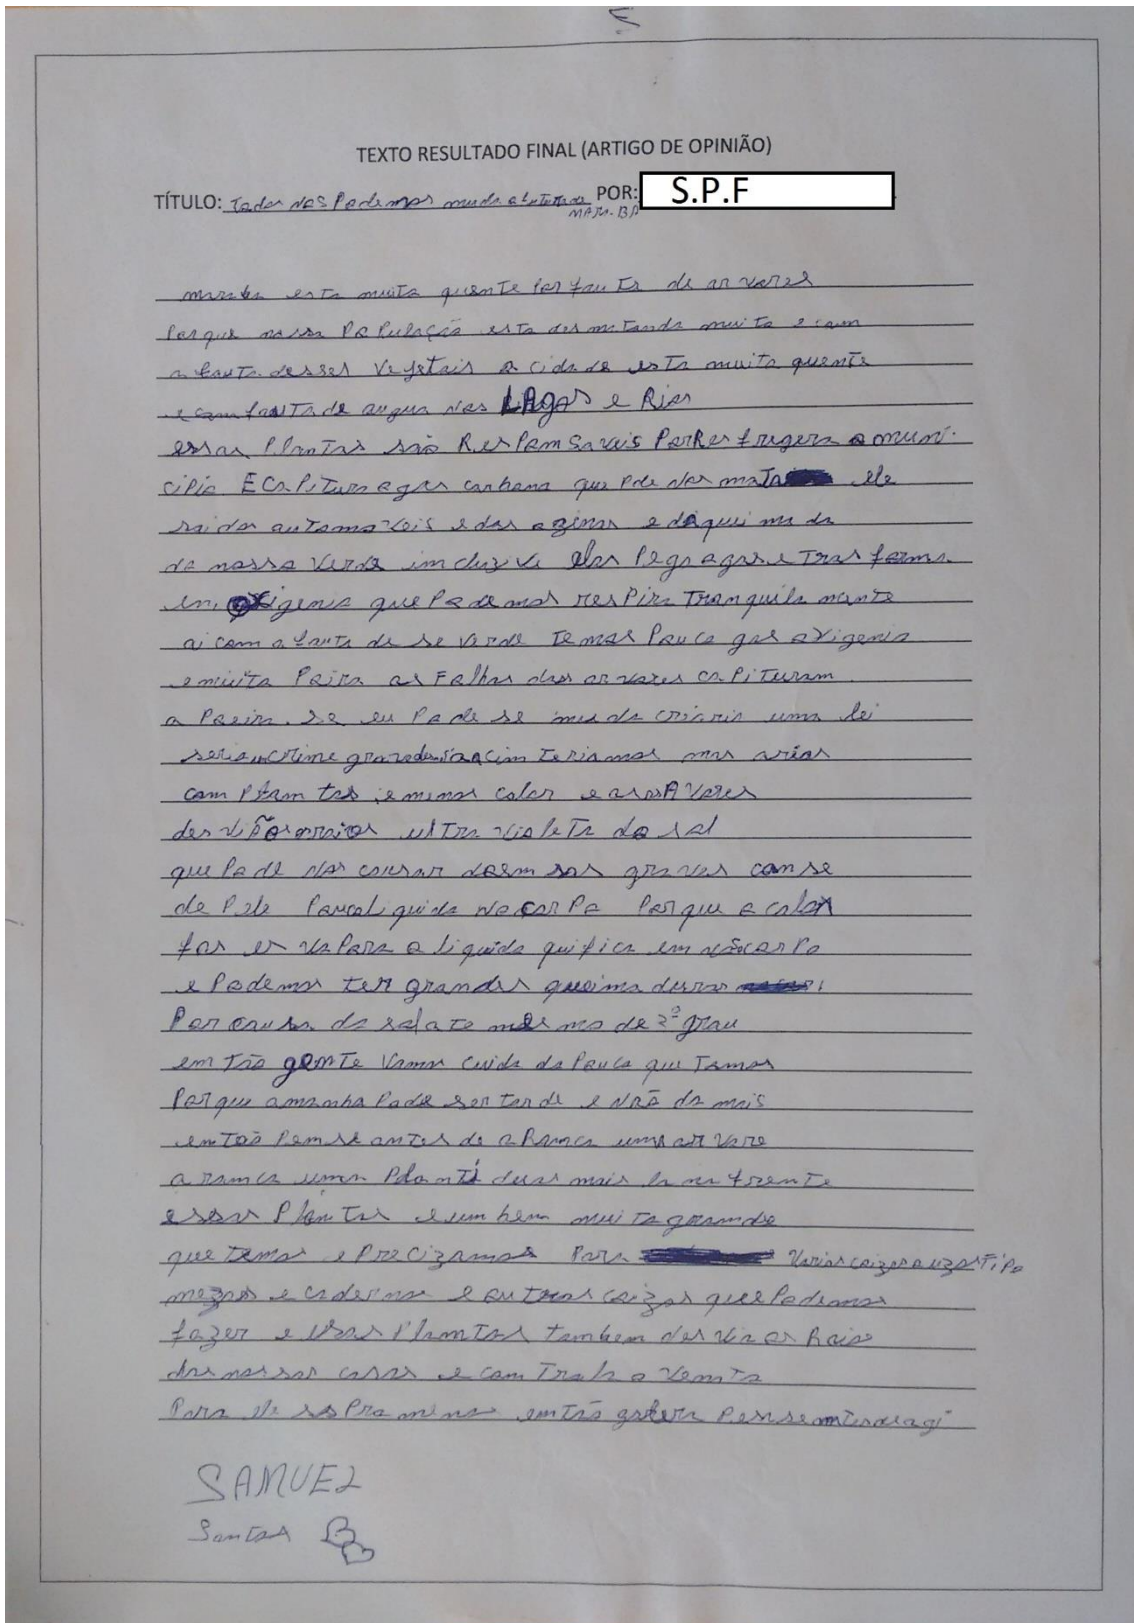 TEXTO RESULTADO FINAL (ARTIGO DE OPINIÃO)
TÍTULO: Todos nos Podemos muda POR: S.P.F
esta muito quente por fauta de arvores
Porque nossa População esta desmatando muito e com
a fauta desses vegetais a cidade esta muito quente
e com fauta de augua nos LAgos e Rios
essas Plantas são ResPomsaveis PorResfrigera o muni-
cipio E CaPitura o gas carbono que Pode nos mata ele
sai dos automoveis e das e daqui
do nosso verde incluzive elas Pega o gas e trasforma
em oxigenio que Podemos resPira tranquilamente
ai com a fauta de se verde temos Pouco gas oxigenio
e muita Poira as Folhas das arvores caPituram
a Poeira. Se eu Pode se muda criaria uma lei
seria crime teriamos mas arias
com Plamtas e menos calor e as Avores
raios ultra violeta do sol
que Pode nos causar doemsas graves canse
de Pele Pouco liquido no corPo Porque o calor
fas evaPora o liquido qui fica em corPo
e Podemos ter grandes queimaduras
Por causa do sol ate mesmo de 3º grau
em tão gente Vamos cuida do Pouco que Temos
Porque amanha Pode ser tarde e não da mais
emtão Pemse antes de aRanca uma arvore
aranca uma Planti duas mais la na frente
essas Plantas e um bem muito grande
que temos e Precizamos Para varias coizas tipo
mezas e caderno e outras coizas que Podemos
fazer e essas Plamtas tambem desvia os Raio
das nossas casas e comtrola o vemto
Para ele soPra menos emtão galera Pense antes de agi
SAMUEL
Santos